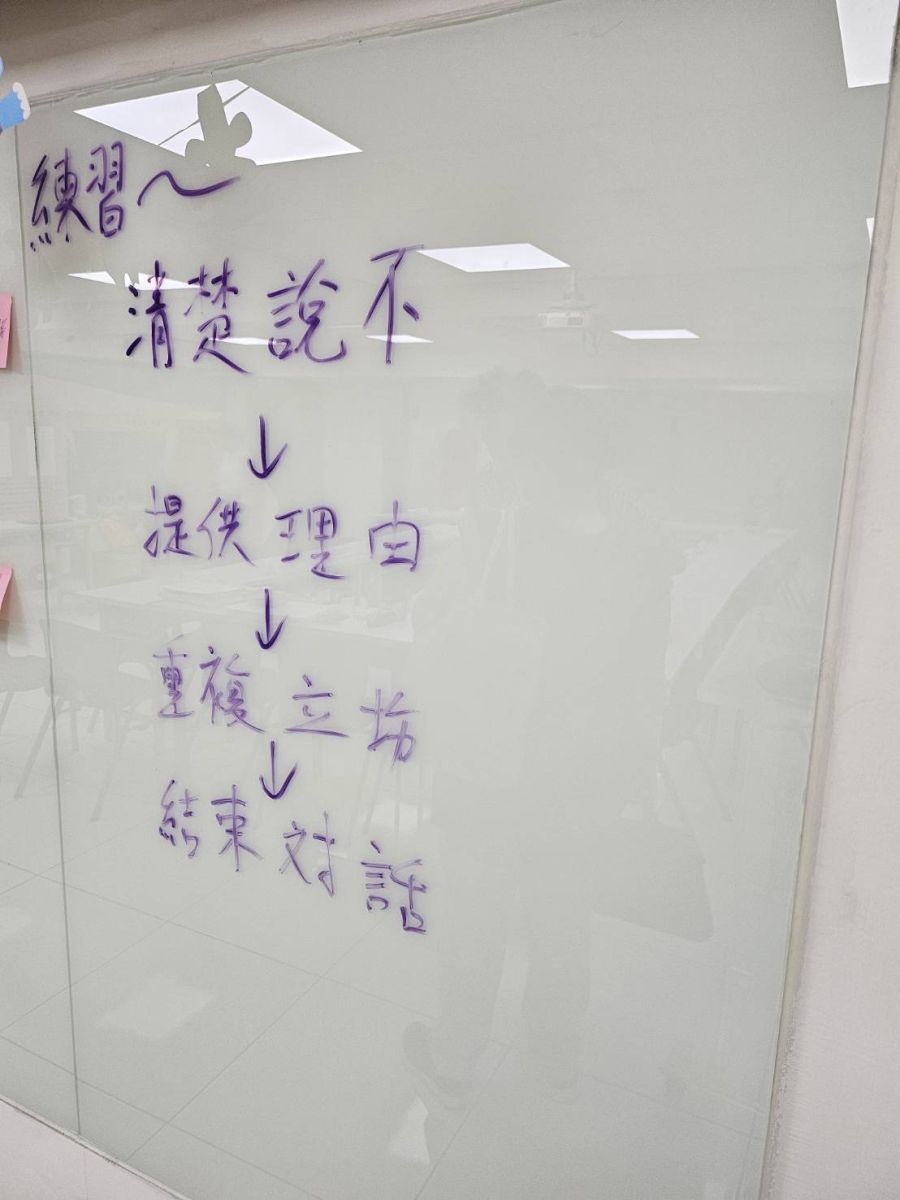 練習~
清楚說不
↓
提供理由
↓
重複立場
↓
結束對話